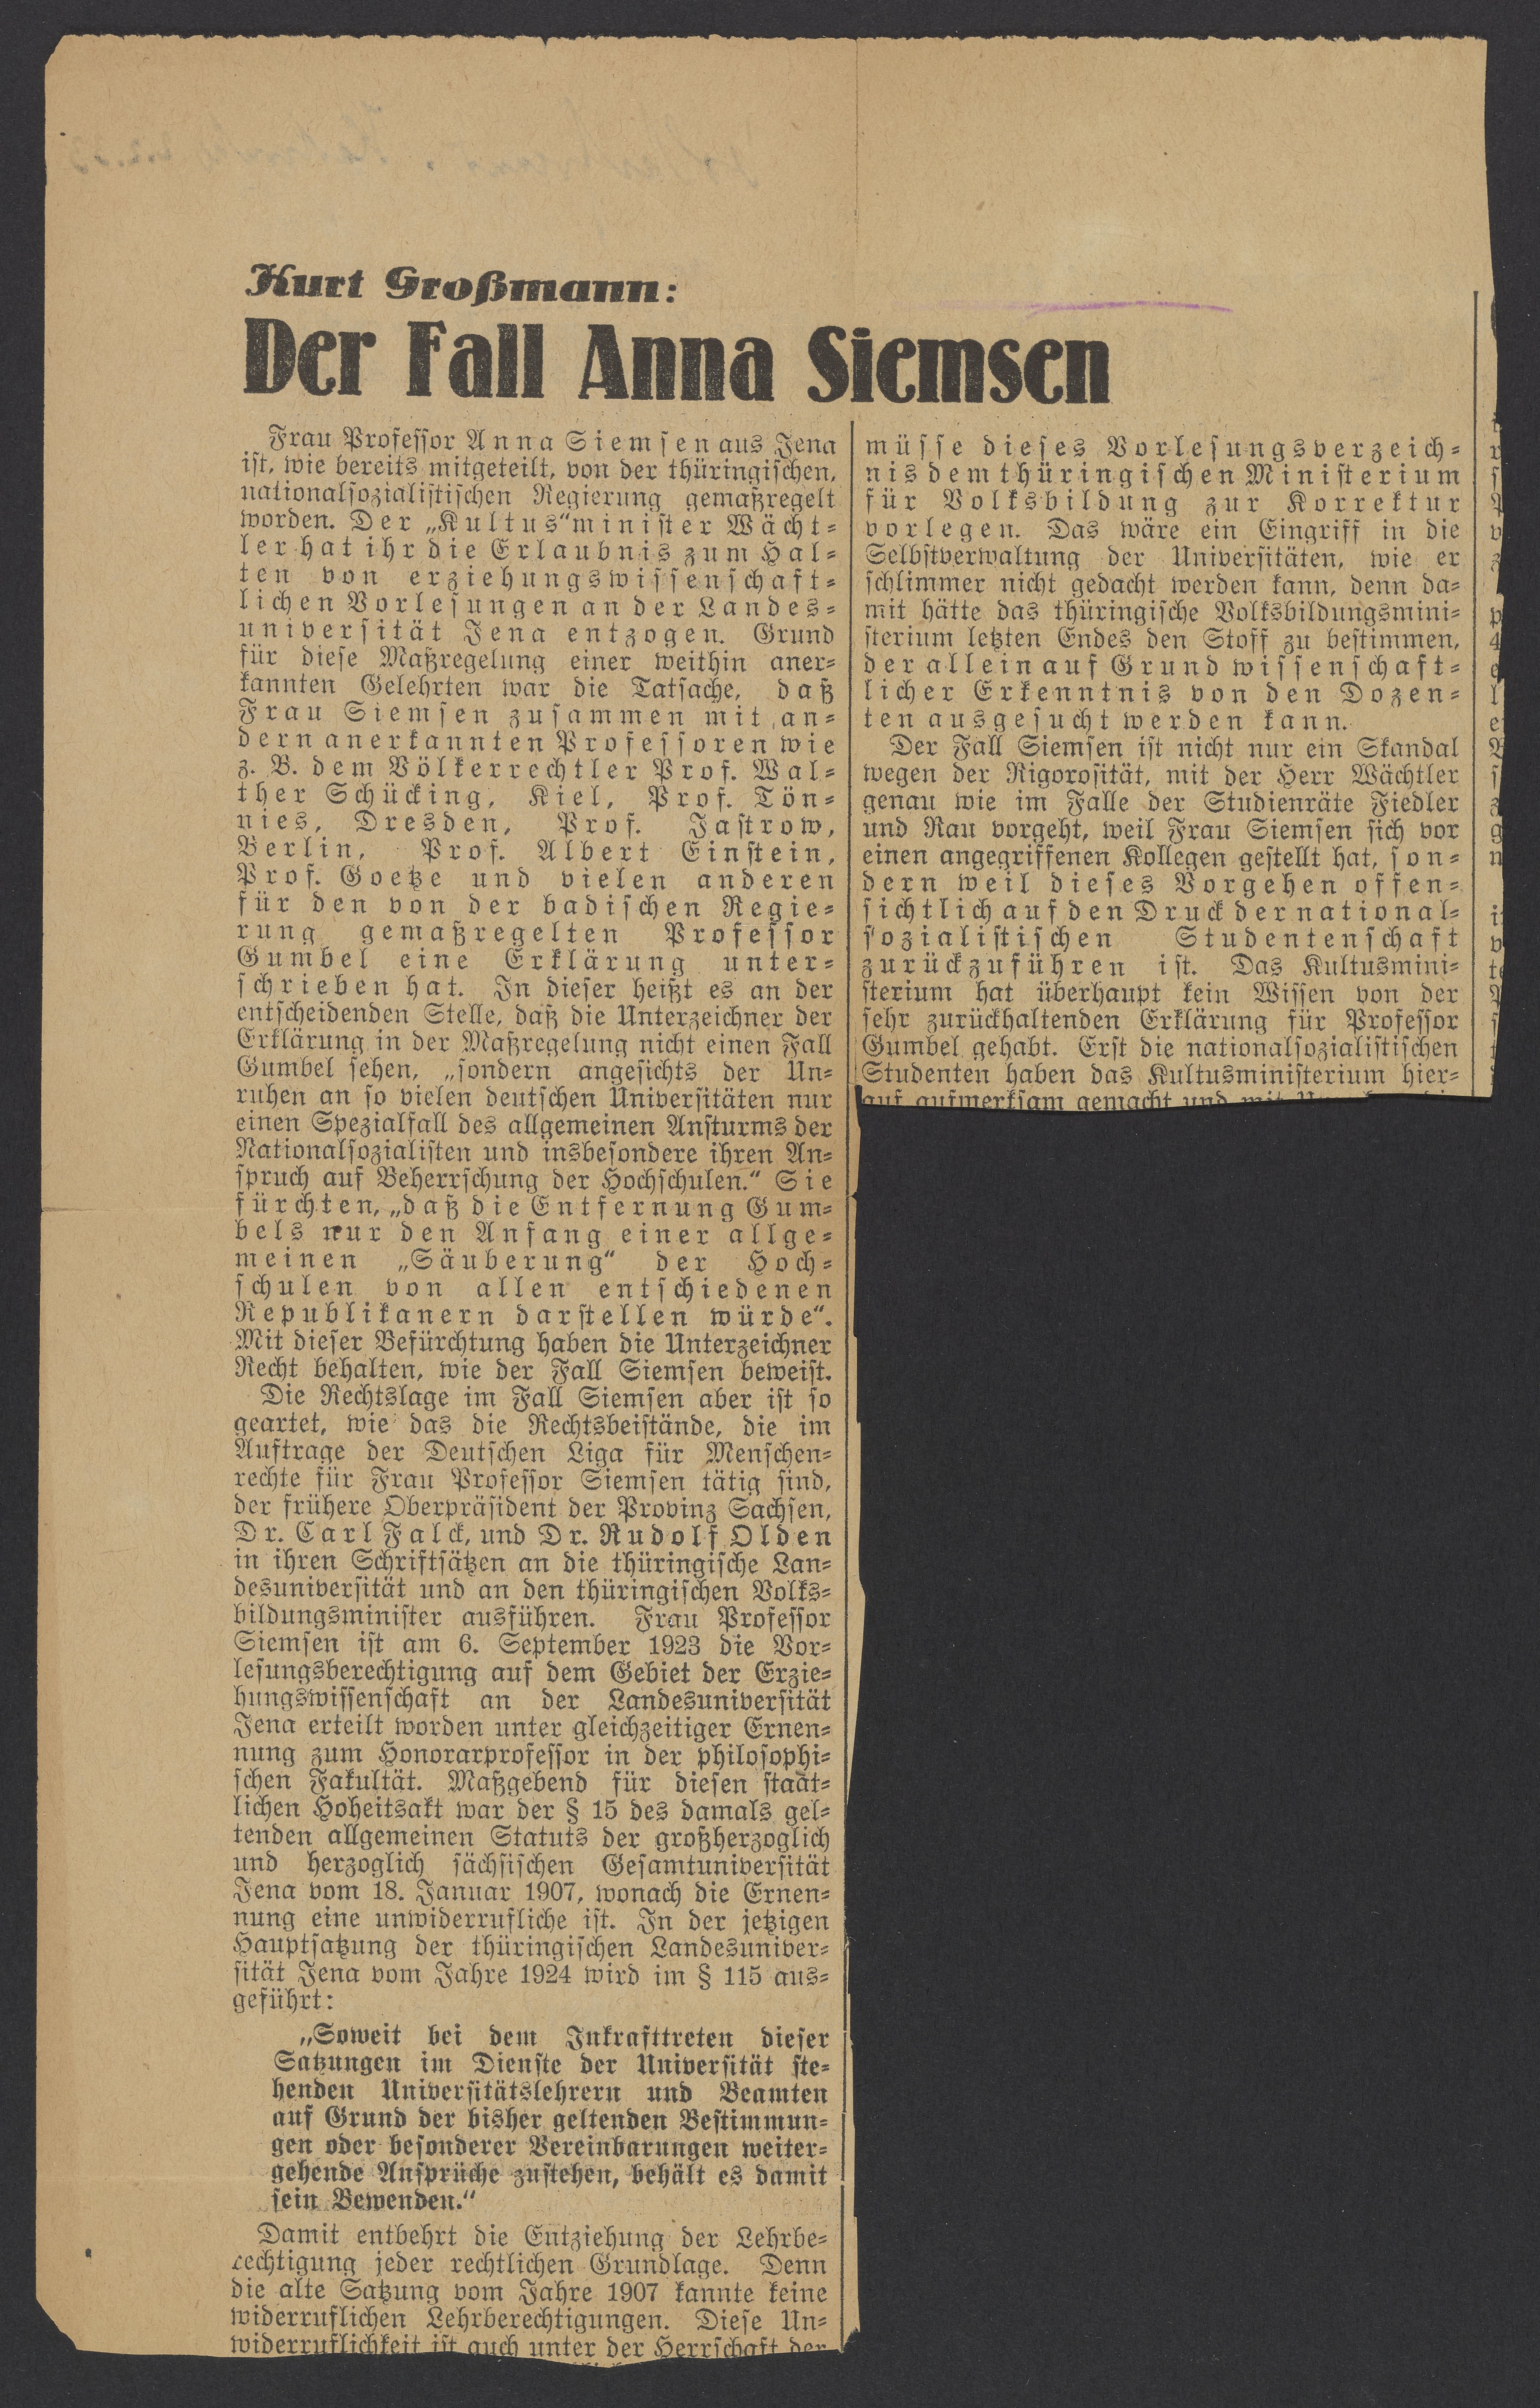 Kurt Großmann:
Der Fall Anna Siemsen
Frau Professor Anna Siemsen aus Jena
ist, wie bereits mitgeteilt, von der thüringischen,
nationalsozialistischen Regierung gemaßregelt
worden. Der „Kultus“minister Wächt-
ler hat ihr die Erlaubnis zum Hal-
ten von erziehungswissenschaft-
lichen Vorlesungen an der Landes-
universität Jena entzogen. Grund
für diese Maßregelung einer weithin aner-
kannten Gelehrten war die Tatsache, daß
Frau Siemsen zusammen mit an-
dern anerkannten Professoren wie
z. B. dem Völkerrechtler Prof. Wal-
ther Schücking, Kiel, Prof. Tön-
nies, Dresden, Prof. Jastrow,
Berlin, Prof. Albert Einstein,
Prof. Goetze und vielen anderen
für den von der badischen Regie-
rung gemaßregelten Professor
Gumbel eine Erklärung unter-
schrieben hat. In dieser heißt es an der
entscheidenden Stelle, daß die Unterzeichner der
Erklärung in der Maßregelung nicht einen Fall
Gumbel sehen, „sondern angesichts der Un-
ruhen an so vielen deutschen Universitäten nur
einen Spezialfall des allgemeinen Ansturms der
Nationalsozialisten und insbesondere ihren An-
spruch auf Beherrschung der Hochschulen.“ Sie
fürchten, „daß die Entfernung Gum-
bels nur den Anfang einer allge-
meinen „Säuberung“ der Hoch-
schulen von allen entschiedenen
Republikanern darstellen würde“.
Mit dieser Befürchtung haben die Unterzeichner
Recht behalten, wie der Fall Siemsen beweist.
Die Rechtslage im Fall Siemsen aber ist so
geartet, wie das die Rechtsbeistände, die im
Auftrage der Deutschen Liga für Menschen-
rechte für Frau Professor Siemsen tätig sind,
der frühere Oberpräsident der Provinz Sachsen,
Dr. Carl Falck, und Dr. Rudolf Olden
in ihren Schriftsätzen an die thüringische Lan-
desuniversität und an den thüringischen Volks-
bildungsminister ausführen. Frau Professor
Siemsen ist am 6. September 1923 die Vor-
lesungsberechtigung auf dem Gebiet der Erzie-
hungswissenschaft an der Landesuniversität
Jena erteilt worden unter gleichzeitiger Ernen-
nung zum Honorarprofessor in der philosophi-
schen Fakultät. Maßgebend für diesen staat-
lichen Hoheitsakt war der § 15 des damals gel-
tenden allgemeinen Statuts der großherzoglich
und herzoglich sächsischen Gesamtuniversität
Jena vom 18. Januar 1907, wonach die Ernen-
nung eine unwiderrufliche ist. In der jetzigen
Hauptsatzung der thüringischen Landesuniver-
sität Jena vom Jahre 1924 wird im § 115 aus-
geführt:
„Soweit bei dem Inkrafttreten dieser
Satzungen im Dienste der Universität ste-
henden Universitätslehrern und Beamten
auf Grund der bisher geltenden Bestimmun-
gen oder besonderer Vereinbarungen weiter-
gehende Ansprüche zustehen, behält es damit
sein Bewenden.“
Damit entbehrt die Entziehung der Lehrbe-
rechtigung jeder rechtlichen Grundlage. Denn
die alte Satzung vom Jahre 1907 kannte keine
widerruflichen Lehrberechtigungen. Diese Un-
widerruflichkeit ist auch unter der Herrschaft der
müsse dieses Vorlesungsverzeich-
nis dem thüringischen Ministerium
für Volksbildung zur Korrektur
vorlegen. Das wäre ein Eingriff in die
Selbstverwaltung der Universitäten, wie er
schlimmer nicht gedacht werden kann, denn da-
mit hätte das thüringische Volksbildungsmini-
sterium letzten Endes den Stoff zu bestimmen,
der allein auf Grund wissenschaft-
licher Erkenntnis von den Dozen-
ten ausgesucht werden kann.
Der Fall Siemsen ist nicht nur ein Skandal
wegen der Rigorosität, mit der Herr Wächtler
genau wie im Falle der Studienräte Fiedler
und Rau vorgeht, weil Frau Siemsen sich vor
einen angegriffenen Kollegen gestellt hat, son-
dern weil dieses Vorgehen offen-
sichtlich auf den Druck der national-
sozialistischen Studentenschaft
zurückzuführen ist. Das Kultusmini-
sterium hat überhaupt kein Wissen von der
sehr zurückhaltenden Erklärung für Professor
Gumbel gehabt. Erst die nationalsozialistischen
Studenten haben das Kultusministerium hier-
auf aufmerksam gemacht und mit